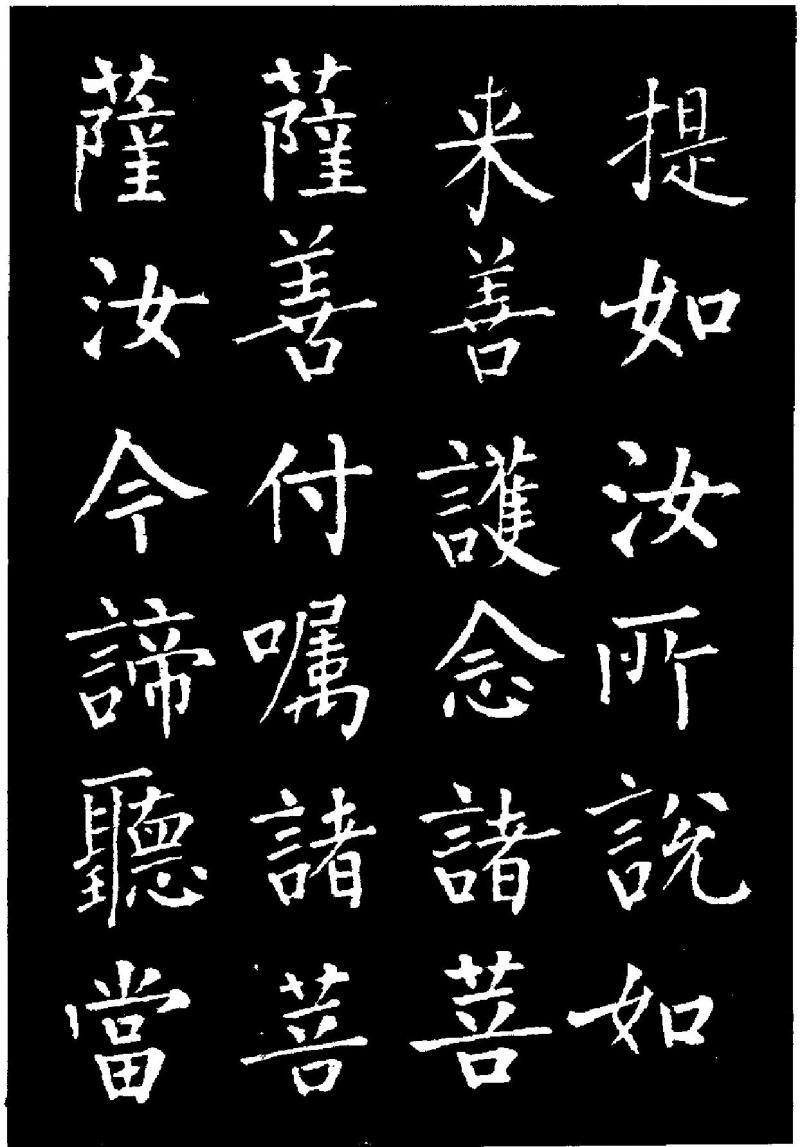 提如汝所說如
来善護念諸菩
薩善付嘱諸菩
薩汝今諦聽當